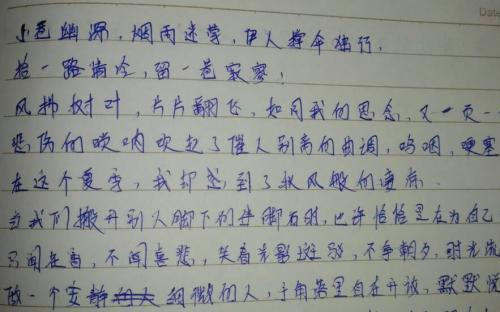 Date
小巷幽深，烟雨迷蒙，伊人撑伞独行，
拾一路清冷，留一巷寂寥；
风拂树叶，片片翻飞，如同我的思念，又一页一
悲伤的唢呐吹起了催人别离的曲调，呜咽，哽塞
在这个夏季，我却感到了秋风般的凄凉.
当我们搬开别人脚下的绊脚石时，也许恰恰是在为自己
只闻花香，不闻喜悲，笑看光影斑驳，不争朝夕，时光流
做一个安静细微的人，于角落里自在开放，默默悦